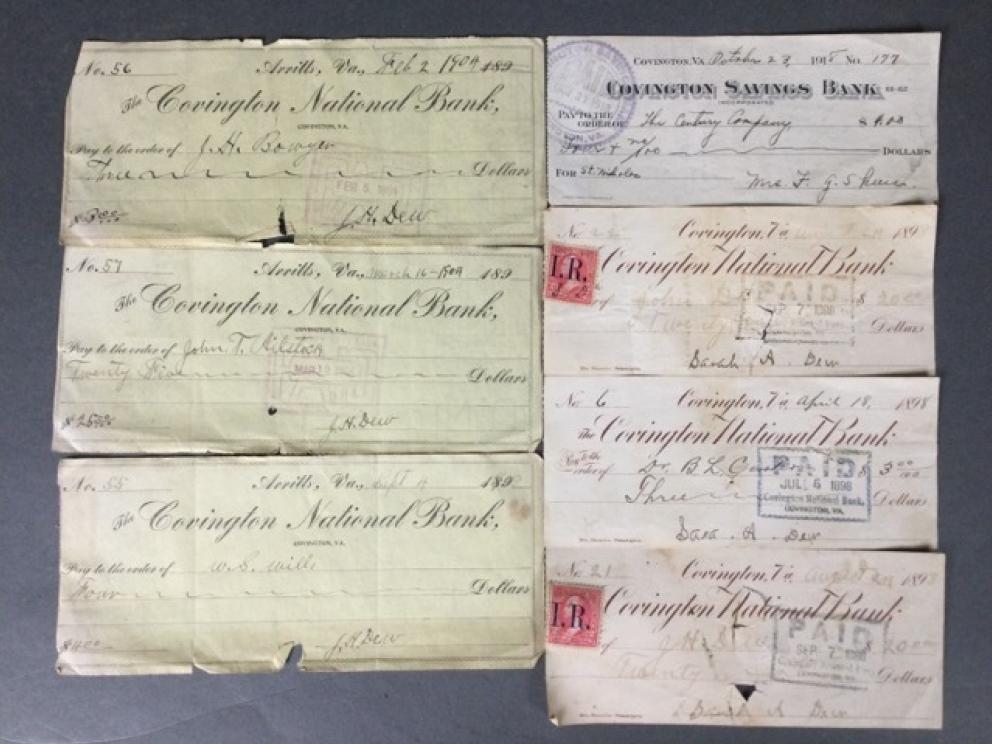 No. 56 Arritts, Va., Feb 2 1904 189
The Covington National Bank,
COVINGTON, VA.
Pay to the order of J. H. Bowyer
Three Dollars
FEB 5
$3.00 J. H. Dew
No. 57 Arritts, Va., March 16-1904 189
The Covington National Bank,
COVINGTON, VA.
Pay to the order of John T.
Twenty Five Dollars
$25.00 J. H. Dew
No. 55 Arritts, Va., Sept 189
The Covington National Bank,
COVINGTON, VA.
Pay to the order of W. S. Wills
Four Dollars
$4.00 J. H. Dew
COVINGTON, VA. October 23, 1915 No. 177
COVINGTON SAVINGS BANK
INCORPORATED
PAY TO THE ORDER OF The Century Company $
DOLLARS
FOR St. Nicholas Mrs. F. G.
No. Covington, Va 189
Covington National Bank
I. R.
of John $ 20
PAID
SEP 7 1898
Twenty Dollars
Sarah A. Dew
No 6 Covington, Va April 18, 1898
The Covington National Bank
Pay to the order of Dr. B L $ 3 00/100
PAID
JUL 6 1898
Covington National Bank,
COVINGTON, VA.
Three Dollars
Sara. A. Dew
No 21 Covington, Va August 189
Covington National Bank
I. R.
of J. H. $ 20
PAID
SEP 7 1898
Twenty Dollars
Sarah A Dew